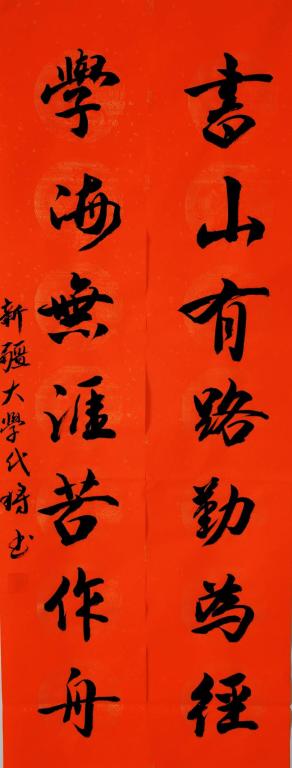 書山有路勤為徑
學海無涯苦作舟
新疆大學代楊書